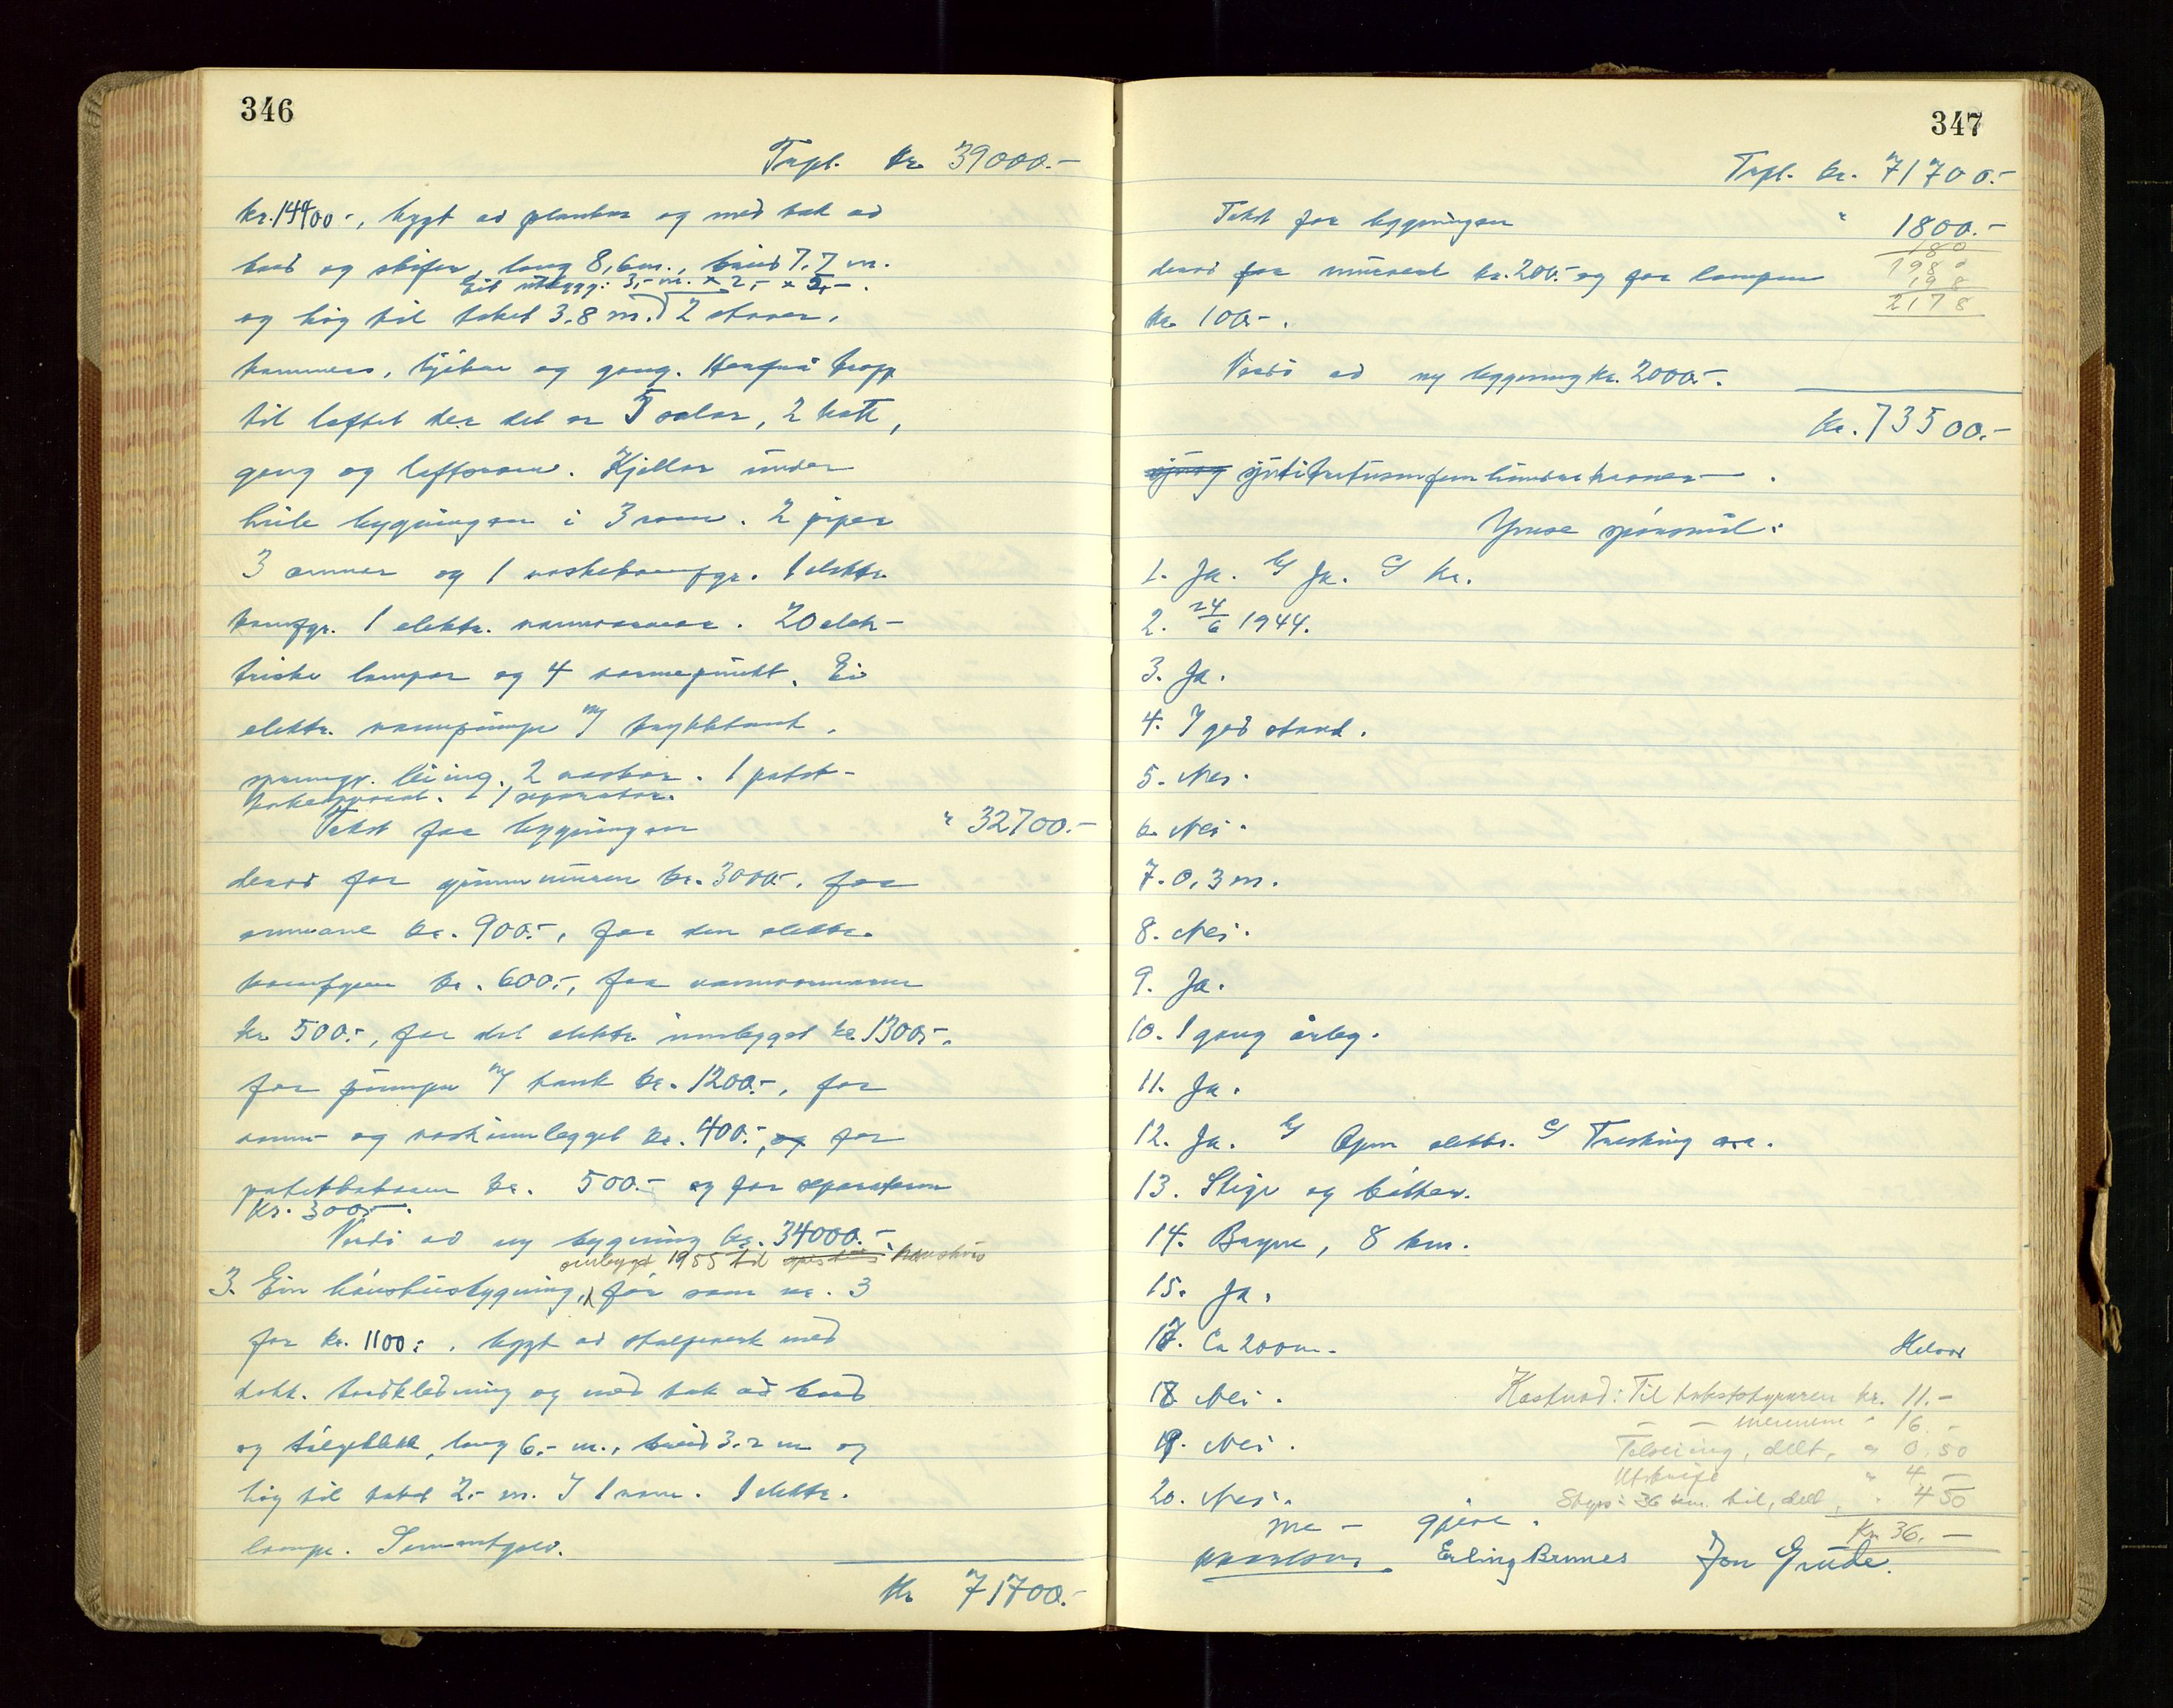 346
Trpt. kr. 39000.-
kr. 14400.-, bygt av plankar og med tak av
bord og skifer, lang 8,6 m., breid 7,7 m.
Eit utbygg: 3,- m. x 2,- x 5,-.
og høg til taket 3,8 m. 2 stover,
kammers, kjøken og gang. Herfrå tropp
til loftet der det er 5 valar, 2 kott,
gang og loftsrom. Kjellar under
heile bygningen i 3 rom. 2 piper
3 omnar og 1 vaskekomfyr. 1 elektr.
komfyr. 1 elektr. vannvarmar. 20 elek-
triske lampor og 4 varmepunkt. Ei
elektr. vannpumpe m/ trykktank,
2 vaskar. 1 potet-
kokeapparat. 1 separator.
Takst for bygningen " 32700.-
derav for grunnmuren kr. 3000.-, for
omnane kr. 900.-, for den elektr.
komfyren kr. 600.-, for vannvarmaren
kr. 500.-, for det elektr. innlegget kr. 1300.-,
for pumpen m/ tank kr. 1200.-, for
vann- og vaskinnlegget kr. 400.-, og for
potetkokaren kr. 500.- og for separatoren
kr. 300.-.
Verdi av ny bygning kr. 34000.-
ombygd 1955 til hønsehus
3. Ein hønsehusbygning, før som nr. 3
for kr. 1100.-, bygt av stolpeverk med
dobb. bordkledning og med tak av bord
og bølgeblekk, lang 6,- m., breid 3,2 m og
høg til taket 2,- m. I 1 rom. 1 elektr.
lampe. Sementgolv.
Kr 71700.-
347
Trpt. kr. 71700.-
Takst for bygningen " 1800.-
180
derav for murverk kr. 200.- og for lampen 1980
198
kr. 100.-. 2178
Verdi av ny bygning kr. 2000.-.
Kr. 73500.-
syttitretusenfemhundrekroner.
Ymse spørsmål:
1. Ja. b/ Ja. c/ Kr.
2. 24/6 1944.
3. Ja.
4. I god stand.
5. Nei.
6. Nei.
7. 0,3 m.
8. Nei.
9. Ja.
10. 1 gang årleg.
11. Ja.
12. Ja. b/ Open elektr. c/ Tresking o.a.
13. Stige og bøtter.
14. Bryne, 8 km.
15. Ja.
17. Ca 200 m.
18. Nei. Kostnad: Til takststyraren kr. 11.-
- - mennene " 16.-
19. Nei. Televising, delt, " 0.50
Utskrift " 4.-
20. Nei. Skyss: 36 km. bil, delt, " 4.50
Kr. 36.-
Erling Brunes Jon Grude.